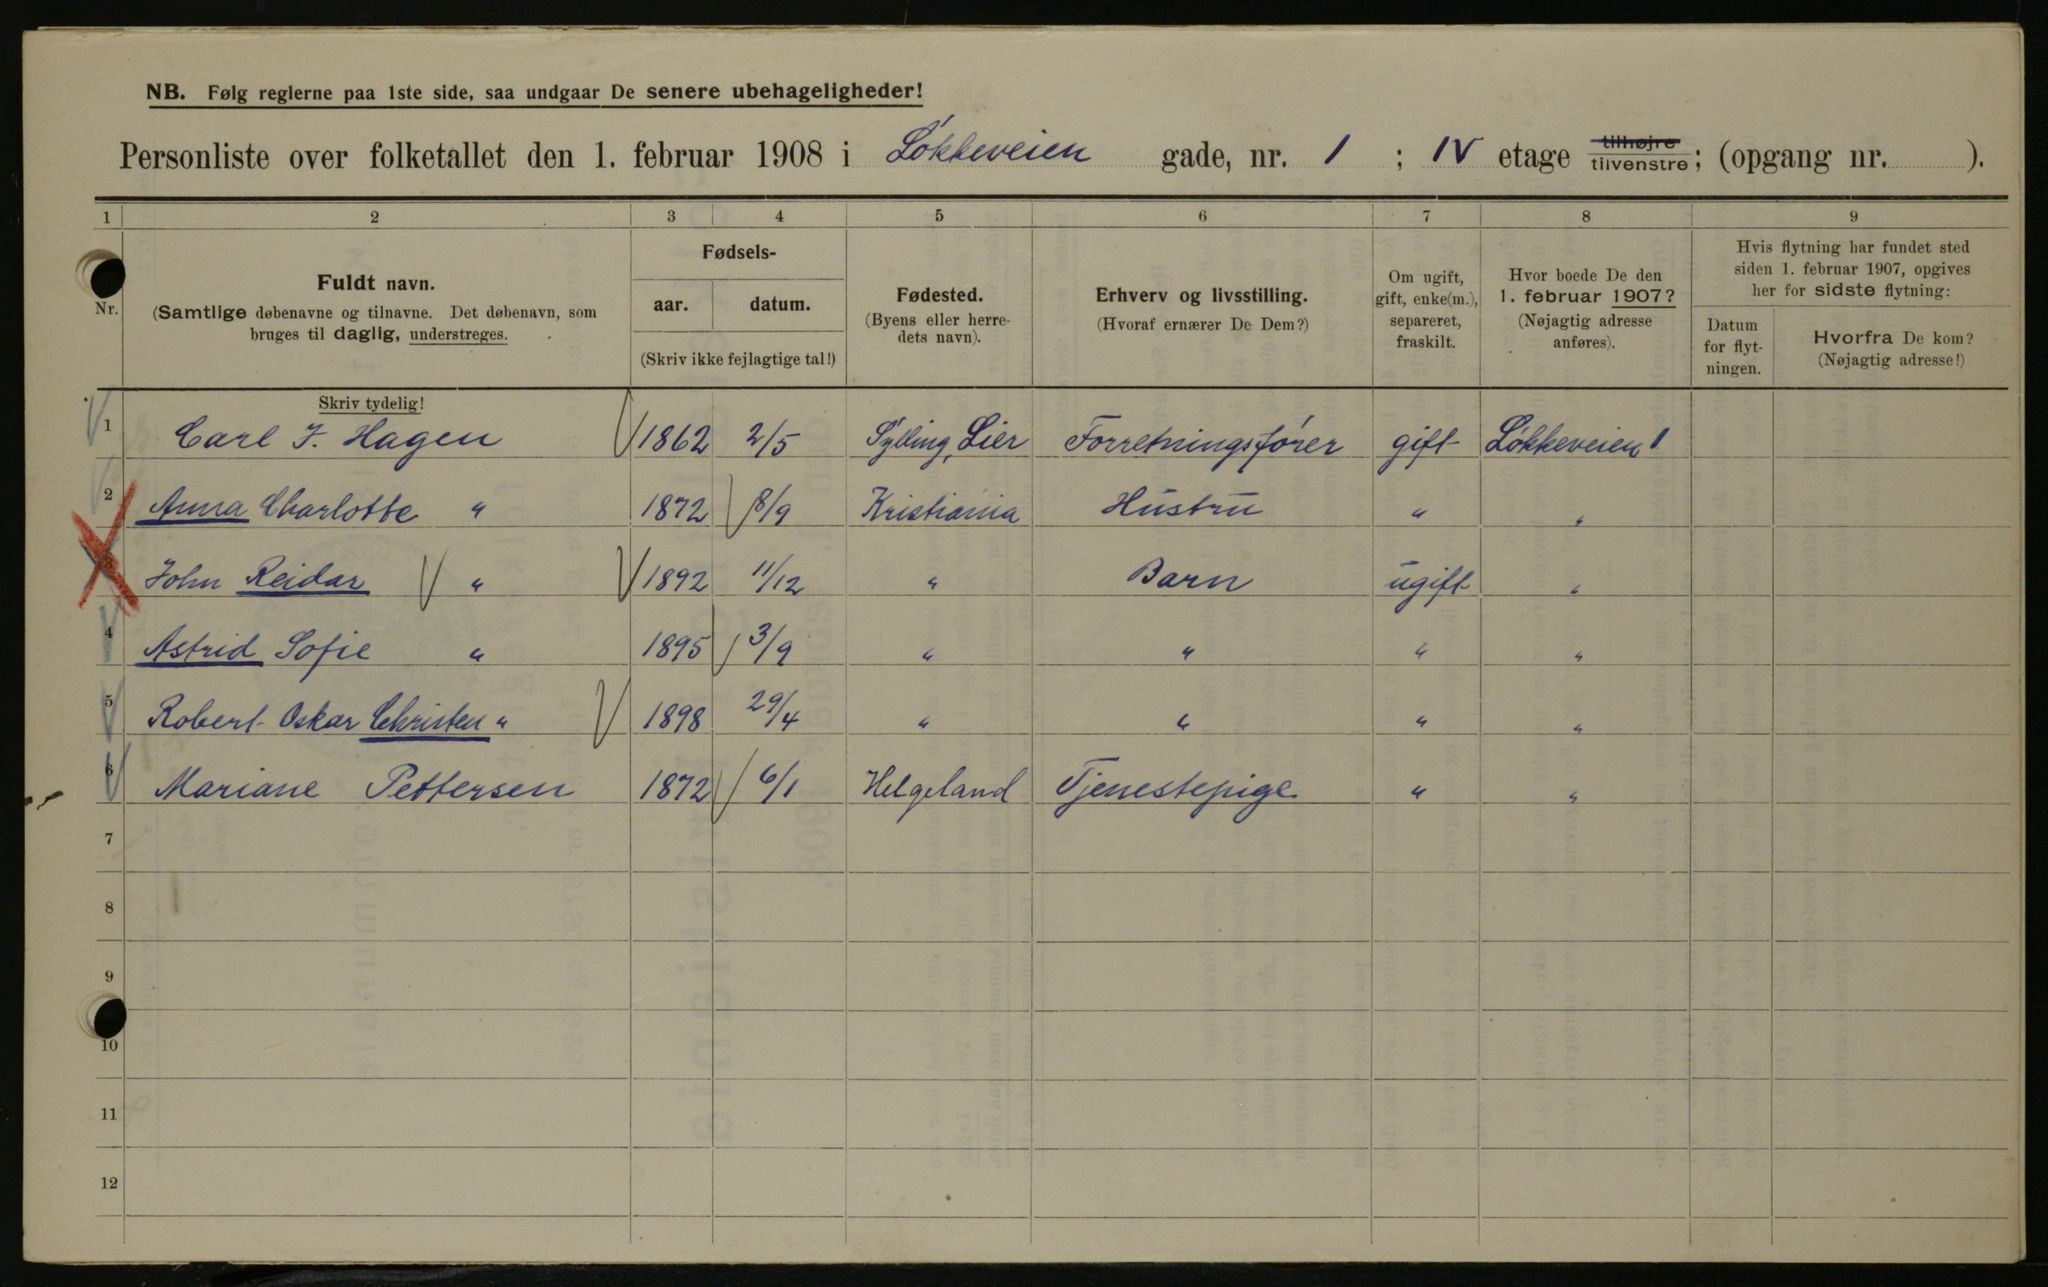 NB. Følg reglerne paa 1ste side, saa undgaar De senere ubehageligheder!
Personliste over folketallet den 1. februar 1908 i Løkkeveien gade, nr. 1 ; IV etage tilhøjre tilvenstre; (opgang nr. ).
1 2 3 4 5 6 7 8 9
Nr.
Fuldt navn.
(Samtlige døbenavne og tilnavne. Det døbenavn, som
bruges til daglig, understreges.
Fødsels-
aar. datum.
(Skriv ikke fejlagtige tal!)
Fødested.
(Byens eller herre-
dets navn).
Erhverv og livsstilling.
(Hvoraf ernærer De Dem?)
Om ugift,
gift, enke(m.),
separeret,
fraskilt.
Hvor boede De den
1. februar 1907?
(Nøjagtig adresse
anføres).
Hvis flytning har fundet sted
siden 1. februar 1907, opgives
her for sidste flytning:
Datum
for flyt-
ningen.
Hvorfra De kom?
(Nøjagtig adresse!)
Skriv tydelig!
1 Carl J. Hagen 1862 2/5 Sylling, Lier Forretningsfører gift Løkkeveien 1
2 Anna Charlotte " 1872 8/9 Kristiania Hustru " "
John Reidar " 1892 11/12 " Barn ugift "
4 Astrid Sofie " 1895 3/9 " " " "
5 Robert Oskar Christen " 1898 29/4 " " " "
6 Mariane Pettersen 1872 6/1 Helgeland Tjenestepige " "
7
8
9
10
11
12